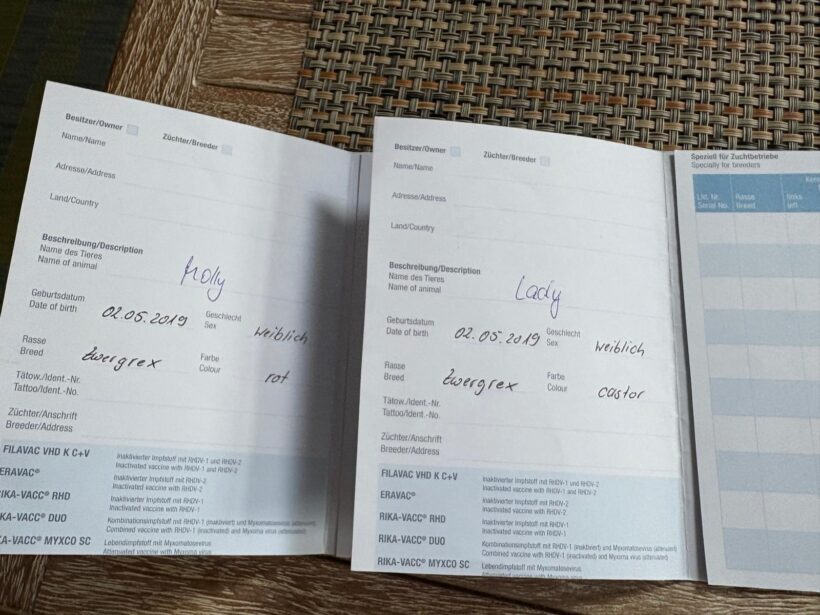 Besitzer/Owner Züchter/Breeder
Name/Name
Adresse/Address
Land/Country
Beschreibung/Description
Name des Tieres
Name of animal
Molly
Geburtsdatum
Date of birth
02.05.2019
Geschlecht
Sex
weiblich
Rasse
Breed
Zwergrex
Farbe
Colour
rot
Tätow./Ident.-Nr.
Tattoo/Ident.-No.
Züchter/Anschrift
Breeder/Address
FILAVAC VHD K C+V
Inaktivierter Impfstoff mit RHDV-1 und RHDV-2
Inactivated vaccine with RHDV-1 and RHDV-2
ERAVAC®
Inaktivierter Impfstoff mit RHDV-2
Inactivated vaccine with RHDV-2
RIKA-VACC® RHD
Inaktivierter Impfstoff mit RHDV-1
Inactivated vaccine with RHDV-1
KA-VACC® DUO
Kombinationsimpfstoff mit RHDV-1 (inaktiviert) und Myxomatosevirus (attenuiert)
Combined vaccine with RHDV-1 (inactivated) and Myxoma virus (attenuated)
KA-VACC® MYXCO SC
Lebendimpfstoff mit Myxomatosevirus
Attenuated vaccine with Myxoma virus
Besitzer/Owner Züchter/Breeder
Name/Name
Adresse/Address
Land/Country
Beschreibung/Description
Name des Tieres
Name of animal
Lady
Geburtsdatum
Date of birth
02.05.2019
Geschlecht
Sex
weiblich
Rasse
Breed
Zwergrex
Farbe
Colour
castor
Tätow./Ident.-Nr.
Tattoo/Ident.-No.
Züchter/Anschrift
Breeder/Address
FILAVAC VHD K C+V
Inaktivierter Impfstoff mit RHDV-1 und RHDV-2
Inactivated vaccine with RHDV-1 and RHDV-2
ERAVAC®
Inaktivierter Impfstoff mit RHDV-2
Inactivated vaccine with RHDV-2
RIKA-VACC® RHD
Inaktivierter Impfstoff mit RHDV-1
Inactivated vaccine with RHDV-1
RIKA-VACC® DUO
Kombinationsimpfstoff mit RHDV-1 (inaktiviert) und Myxomatosevirus (attenuiert)
Combined vaccine with RHDV-1 (inactivated) and Myxoma virus (attenuated)
RIKA-VACC® MYXCO SC
Lebendimpfstoff mit Myxomatosevirus
Attenuated vaccine with Myxoma virus
Speziell für Zuchtbetriebe
Specially for breeders
Lfd. Nr.
Serial No.
Rasse
Breed
links
left